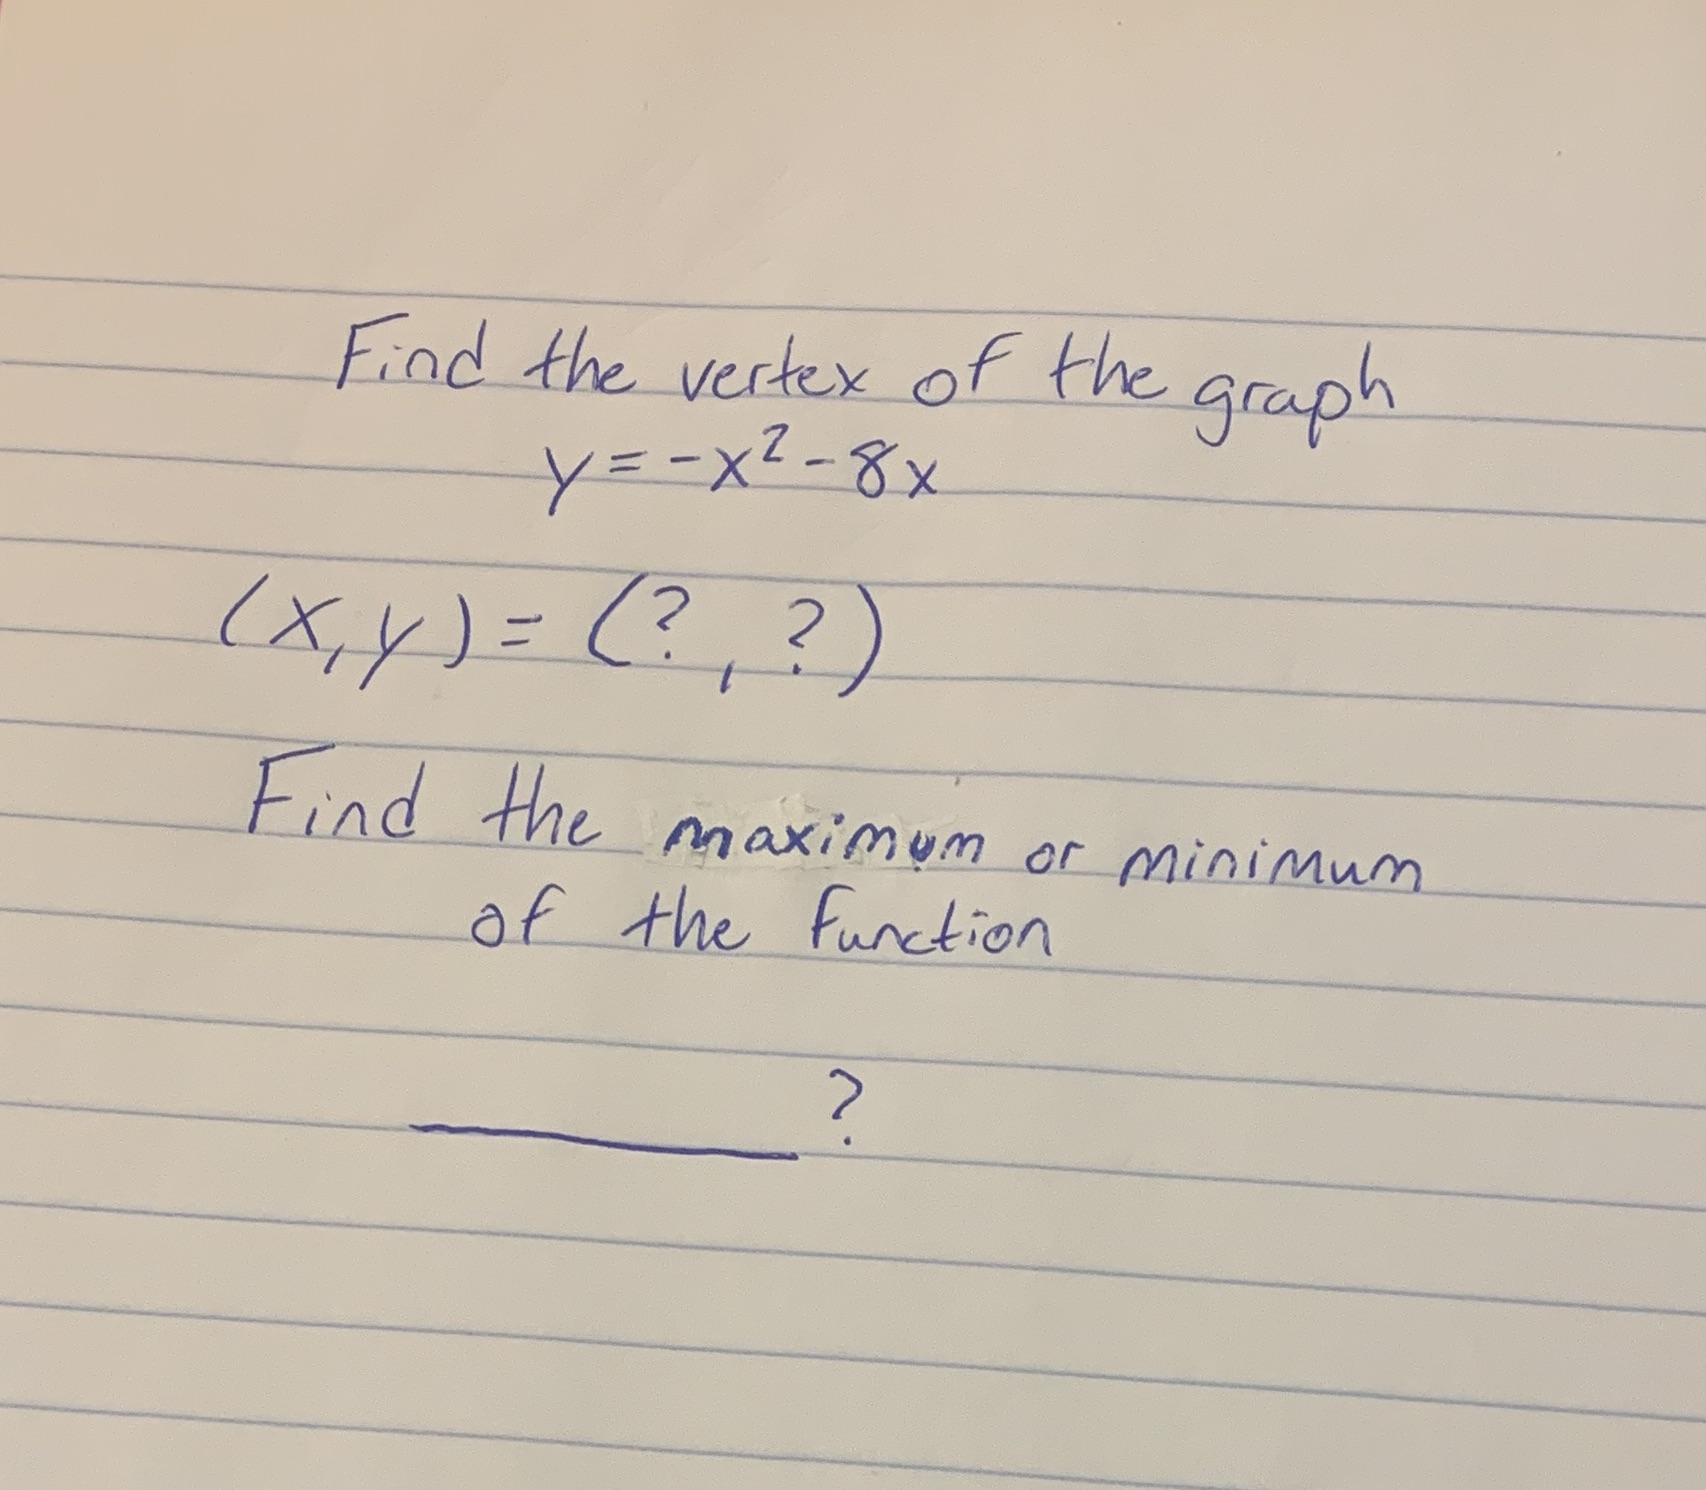 Find the vertex of the graph
y=-x²-8x
(x,y)=(?,?)
Find the maximum or minimum
of the function
________?